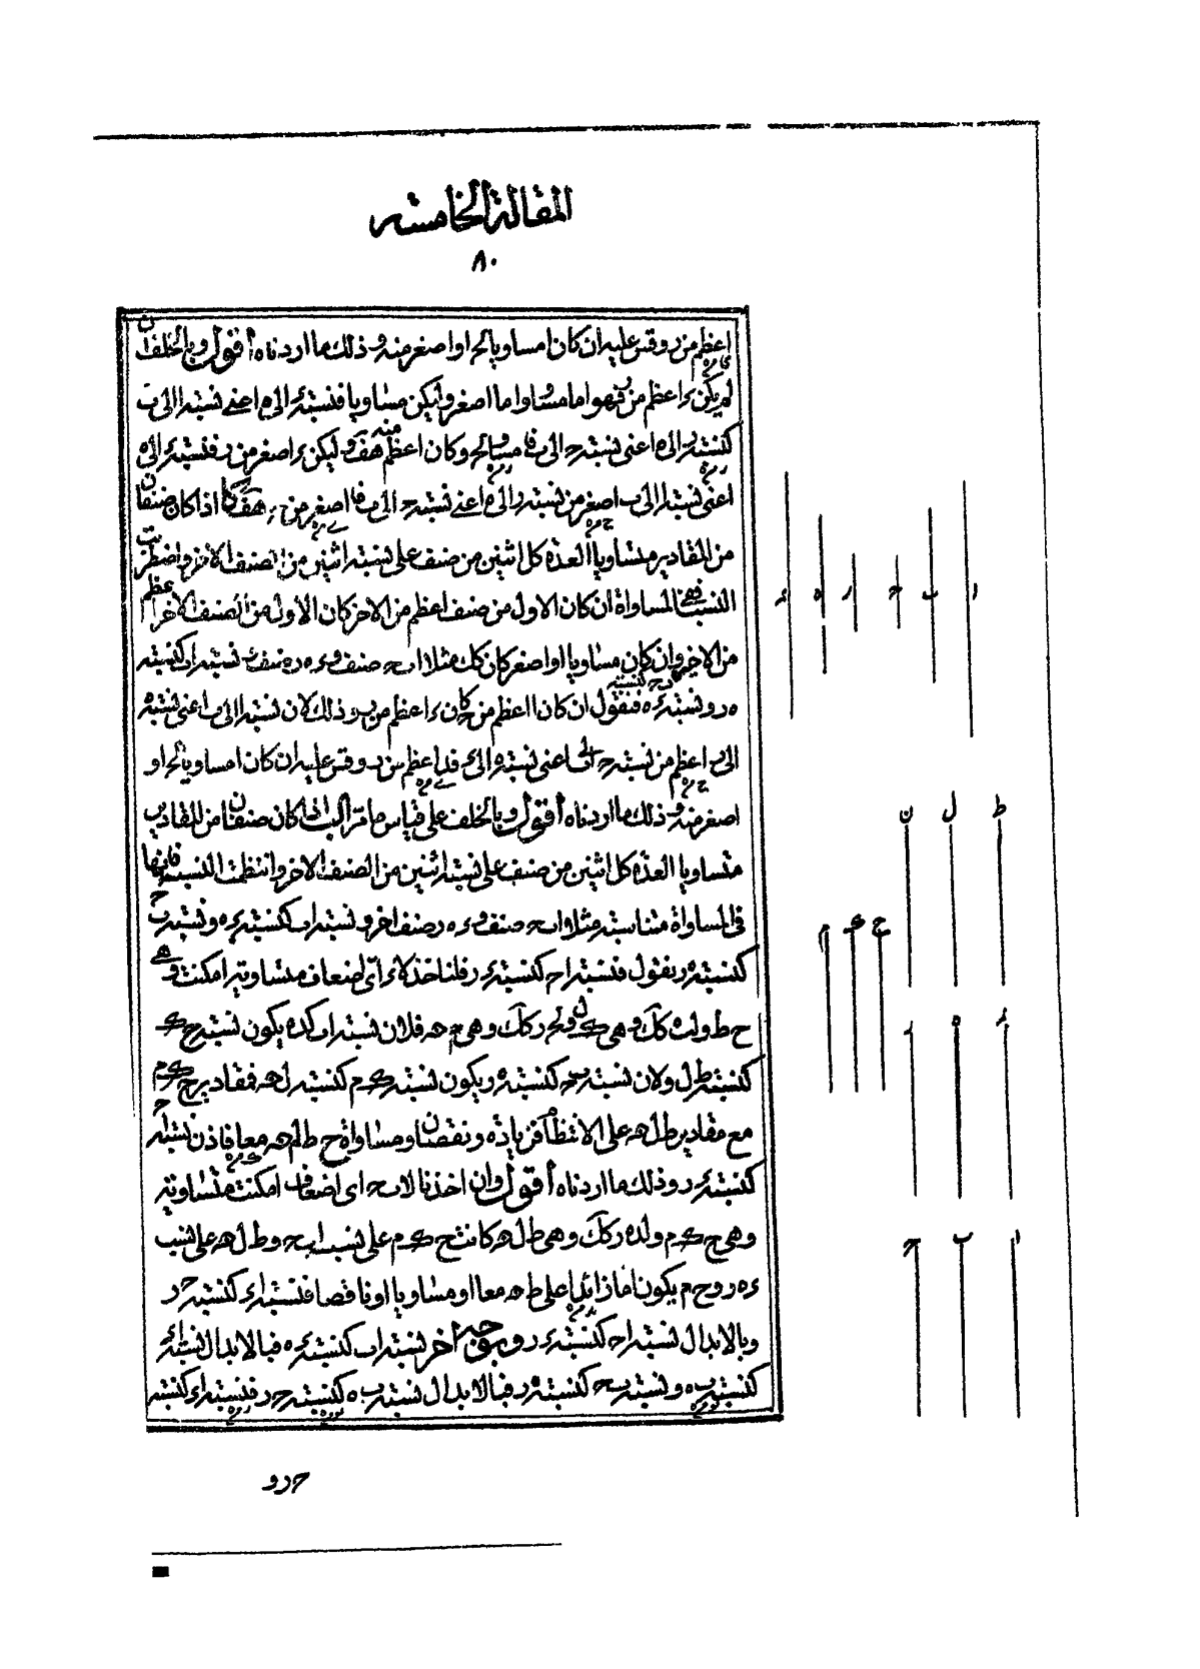 المقالة الخامسة
٨٠
اعظم من ر وقس عليه ان كان ا مساويا لحـ او اصغر منه وذلك ما اردناه أقول وبالخلف ان
لم يكن ء اعظم من ر فهو اما مساو او اما اصغر وليكن مساويا فنسبة ء الى ه اعنى نسبة ا الى ب
كنسبة ر الى ه اعنى نسبة حـ الى ب فا مساو لحـ وكان اعظم منه هف وليكن ء اصغر من ر فنسبة ء الى ه
اعنى نسبة ا الى ب اصغر من نسبة ر الى ه اعنى نسبة حـ الى ب فا اصغر من حـ هف كا اذا كان صنفان
من المقادير متساويا العدة كل اثنين من صنف على نسبة اثنين من الصنف الآخر واضطربت
النسبة ففى المساواة ان كان الاول من صنف اعظم من الاخر كان الاول من الصنف الآخر اعظم
من الاخير وان كان مساويا او اصغر كان كك مثلا ا ب حـ صنف و ء ه ر صنف نسبة ا ب كنسبة
ه ر و نسبة ب حـ كنسبة ء ه فنقول ان كان ا اعظم من حـ كان ء اعظم من ر وذلك لان نسبة ا الى ب اعنى نسبة ه
الى ر اعظم من نسبة حـ الى ب اعنى نسبة ه الى ء فـ ء اعظم من ر وقس عليه ان كان ا مساويا لحـ او
اصغر منه وذلك ما اردناه أقول وبالخلف على قياس ما مر كب اذا كان صنفان من المقادير
متساويا العدة كل اثنين من صنف على نسبة اثنين من الصنف الآخر وانتظمت النسبة فانها
فى المساواة متناسبة مثلا و ا ب حـ صنف و ء ه ر صنف اخر و نسبة ا ب كنسبة ء ه و نسبة ب حـ
كنسبة ه ر نقول فنسبة ا حـ كنسبة ء ر فلناخذ لا ء اى اضعاف متساوية امكنت وهى
ح ط و لـ ب ه كك وهى ك ل و لحـ ر كك وهى م هـ فلان نسبة ا ب كـ ء ه يكون نسبة ح ك
كنسبة ط ل ولان نسبة ب حـ كنسبة ه ر يكون نسبة ك م كنسبة ل هـ فمقادير ح ك م
مع مقادير ط ل هـ على الانتظام فزيادة ونقصان ومساواة ح ط لـ م هـ معا فاذن نسبة ا حـ
كنسبة ء ر وذلك ما اردناه أقول وان اخذنا لا ب حـ اى اضعاف امكنت متساوية
وهى ح ك م و لـ ء ه ر كك وهى ط ل هـ كانت ح ك م على نسب ا ب حـ و ط ل هـ على نسب
ء ه ر و ح م يكون اما زائدا على ط هـ معا او مساويا او ناقصا فنسبة ا ء كنسبة حـ ر
وبالابدال نسبة ا حـ كنسبة ء ر وبوجه آخر نسبة ا ب كنسبة ء ه فبالابدال نسبة ا ء
كنسبة ب ه و نسبة ب حـ كنسبة ه ر فبالابدال نسبة ب ه كنسبة حـ ر فنسبة ا ء كنسبة
حـ ر و
ا ب حـ ر ه ء
ط ل ن
ح ع م
ء ه ر
ا ب حـ